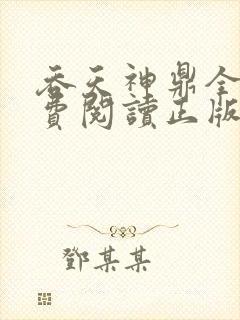 吞天神鼎全
費閱讀正版
鄧某某